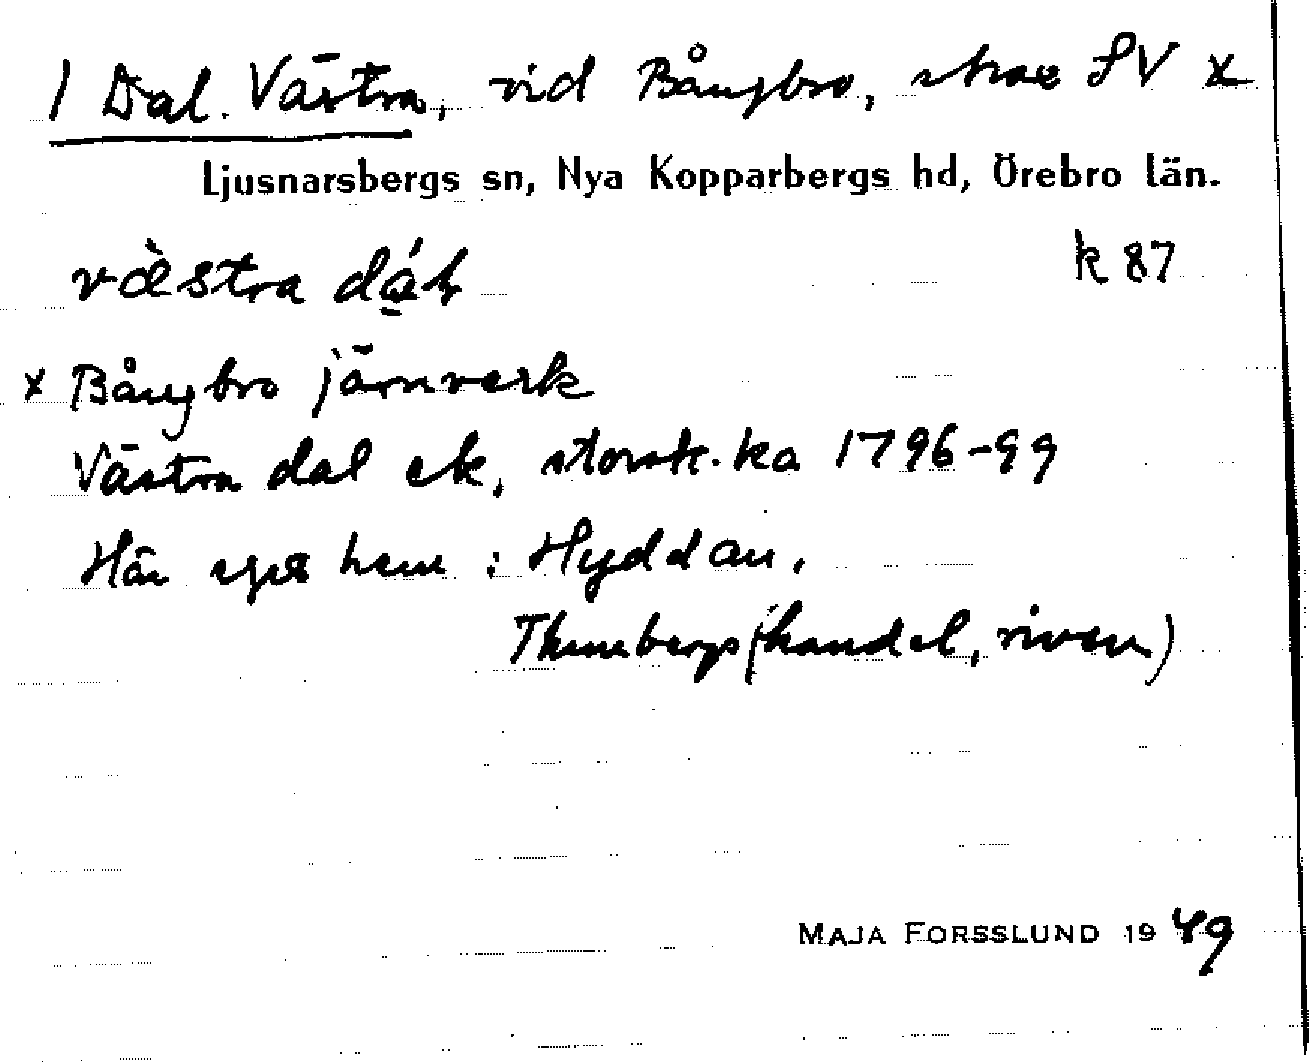 1 Dal. Västra, vid Bångbro, strax SV x
Ljusnarsbergs sn, Nya Kopparbergs hd, Örebro län.
væ̀stra dá̱ɫ k 87
x Bångbro järnverk
Västra dal ek, storsk.ka 1796-99
Här eget hem : Hyddan,
Thunbergs (handel, riven)
MAJA FORSSLUND 1949